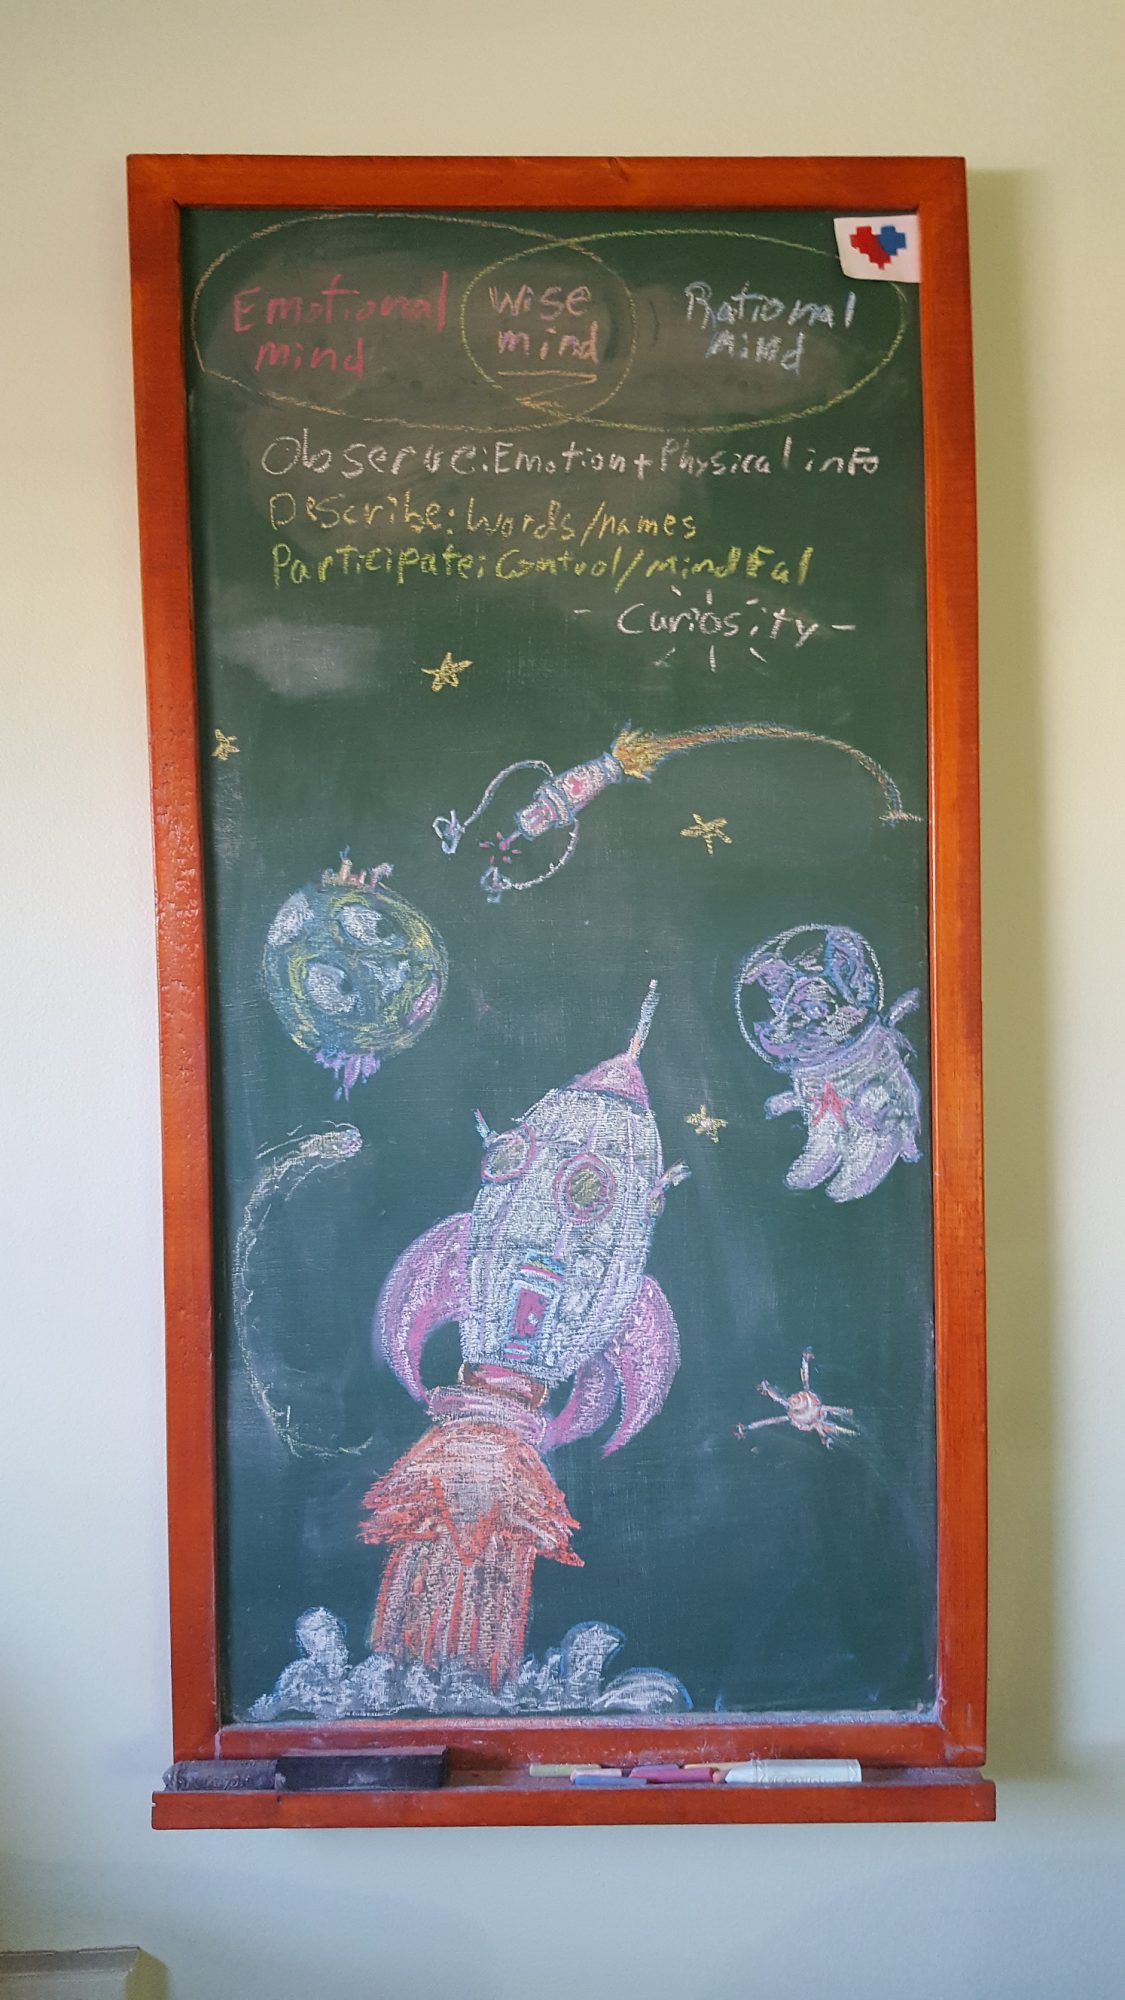 Emotional
mind
Wise
mind
Rational
Mind
Observe: Emotion + Physical info
Describe: Words/names
Participate: Control/mindFul
- Curiosity -